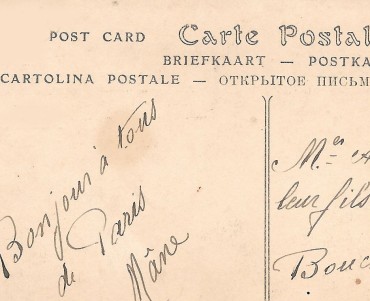 POST CARD Carte Postal
BRIEFKAART — POSTKA
CARTOLINA POSTALE — ОТКРЫТОЕ ПИСЬМ
Bonjour à tous
de Paris
Mâne
leur fils
Bouc